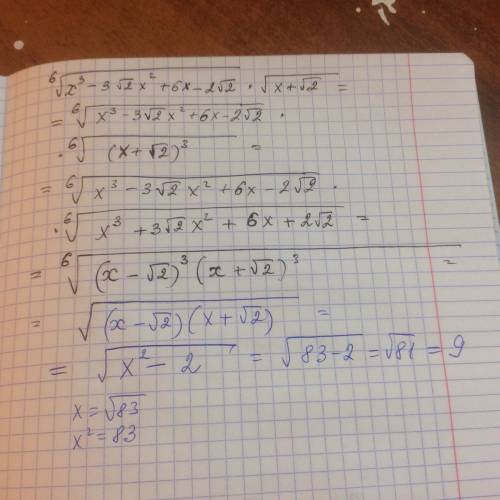 ⁶√(x³ - 3√2 x² + 6x - 2√2) · √(x + √2) =
= ⁶√(x³ - 3√2 x² + 6x - 2√2) ·
· ⁶√((x + √2)³) =
= ⁶√(x³ - 3√2 x² + 6x - 2√2) ·
· ⁶√(x³ + 3√2 x² + 6x + 2√2) =
= ⁶√((x - √2)³ (x + √2)³) =
= √((x - √2)(x + √2)) =
= √(x² - 2) = √(83 - 2) = √81 = 9
x = √83
x² = 83